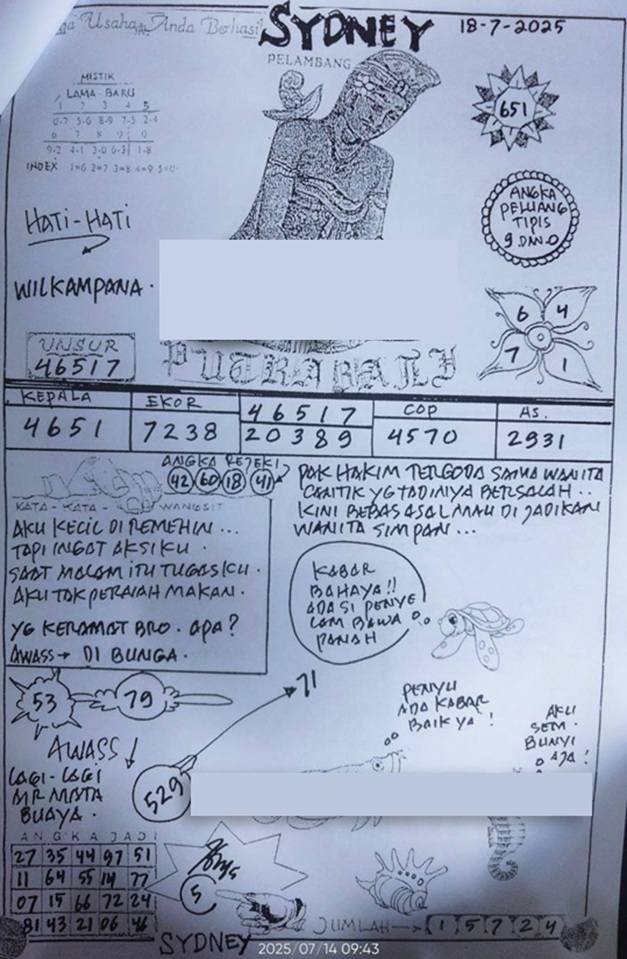 Usaha Anda Berhasil
SYDNEY
18-7-2025
PELAMBANG
MISTIK
LAMA-BARU
1 2 3 4 5
0-7 5-6 8-9 7-3 2-4
6 7 8 9 0
9-2 4-1 3-0 6-3 1-8
INDEX 1=6 2=7 3=8 4=9 5=0
651
ANGKA
PELUANG
TIPIS
9 DAN 0
HATI-HATI
WILKAMPANA.
6 4
7 1
UNSUR
46517
PUTRA BALI
KEPALA EKOR 46517 COP AS.
4651 7238 20389 4570 2931
ANGKA REJEKI
42 60 18 41
PAK HAKIM TERGODA SAMA WANITA
CANTIK YG TADINYA BERSALAH..
KINI BEBAS ASAL MAU DI JADIKAN
WANITA SIMPAN...
KATA-KATA-WANGSIT
AKU KECIL DI REMEHIN...
TAPI INGAT AKSIKU.
SAAT MALAM ITU TUGASKU.
AKU TAK PERNAH MAKAN.
YG KERAMAT BRO. APA?
AWASS → DI BUNGA.
KABAR
BAHAYA!!
ADA SI PENYE
LAM BAWA
PANAH
53 79
71
PENYU
ADA KABAR
BAIK YA!
AKU
SEM-
BUNYI
AJA!
AWASS
LAGI-LAGI
MR MATA
BUAYA.
529
ANGKA JADI
27 35 44 97 51
11 64 55 14 77
07 15 66 72 24
81 43 21 06 46
5
JUMLAH → 1 5 7 2 4
SYDNEY
2025/07/14 09:43